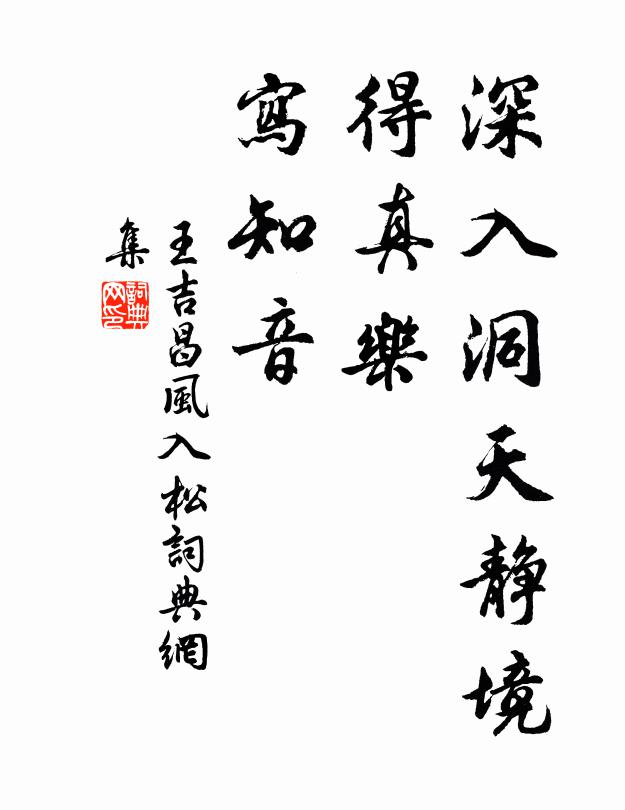 深入洞天静境
得真樂
寫知音
王吉昌風入松詞典網
集
詞典
网印